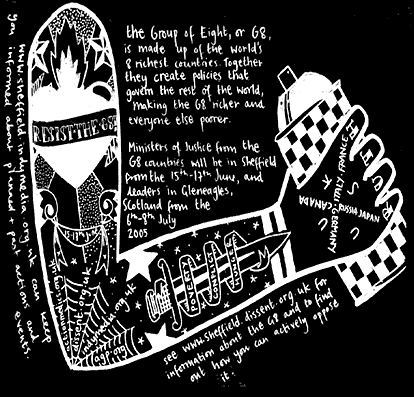 the Group of Eight, or G8,
is made up of the world's
8 richest countries. Together
they create policies that
govern the rest of the world,
making the G8 richer and
everyone else poorer.
Ministers of Justice from the
G8 countries will be in Sheffield
from the 15th-17th June, and
leaders in Gleneagles,
Scotland from the
6th-8th July
2005
see www.sheffield.dissent.org.uk for
information about the G8 and to find
out how you can actively oppose
it.
www.sheffield.indymedia.org.uk can keep
you informed about planned & past actions and
events.
RESIST THE G8
POVERTY
CONFLICT
dissent.org.uk
indymedia.org.uk
agp.org
FRANCE
ITALY
GERMANY
JAPAN
RUSSIA
CANADA